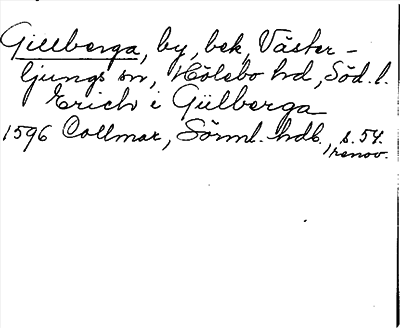 Gillberga, by, bek, Väster-
ljungs sn, Hölebo hd, Söd. l.
Erich i Gülberga
1596 Collmar, Sörml. hdl., s. 54.
renov.